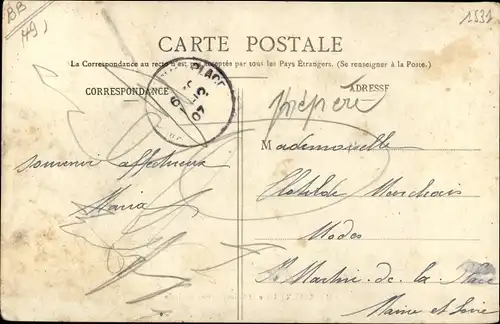 BB
49)
1531
CARTE POSTALE
La Correspondance au recto n'est pas acceptée par tous les Pays Étrangers. (Se renseigner à la Poste.)
CORRESPONDANCE
ADRESSE
PLACE
07
souvenir affectueux
Maria
Mademoiselle
Clotilde Marchais
Modes
St Martin-de-la Place
Maine et Loire